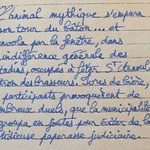 L'animal mythique s'empara
son tour du bâton... et
envola par la fenêtre, dans
indifférence générale des
tadins, occupés à fêter St
tron des brasseurs. Ivres de bière,
participants provoquèrent de
breux duels, que la municipalité
groupa en joutes pour éviter de la
dieuse paperasse judiciaire.